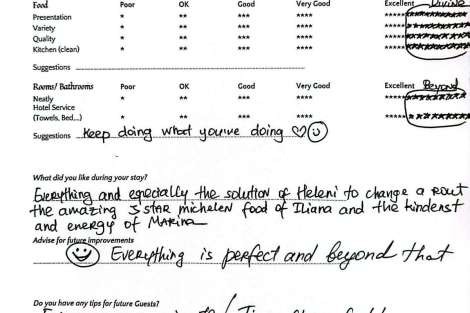 Food Poor OK Good Very Good Excellent Divine
Presentation * ** *** **** *****
Variety * ** *** **** *****
Quality * ** *** **** *****
Kitchen (clean) * ** *** **** *****
Suggestions
Rooms/ Bathrooms Poor OK Good Very Good Excellent Beyond
Neatly * ** *** **** *****
Hotel Service
(Towels, Bed,...) * ** *** **** *****
Suggestions keep doing what youve doing ♡☺
What did you like during your stay?
Everything and especially the solution of Heleni to change a
the amazing 5 STAR michelen food of Iliana and the kindenst
and energy of Marina
Advise for future improvements
☺ Everything is perfect and beyond that
Do you have any tips for future Guests?